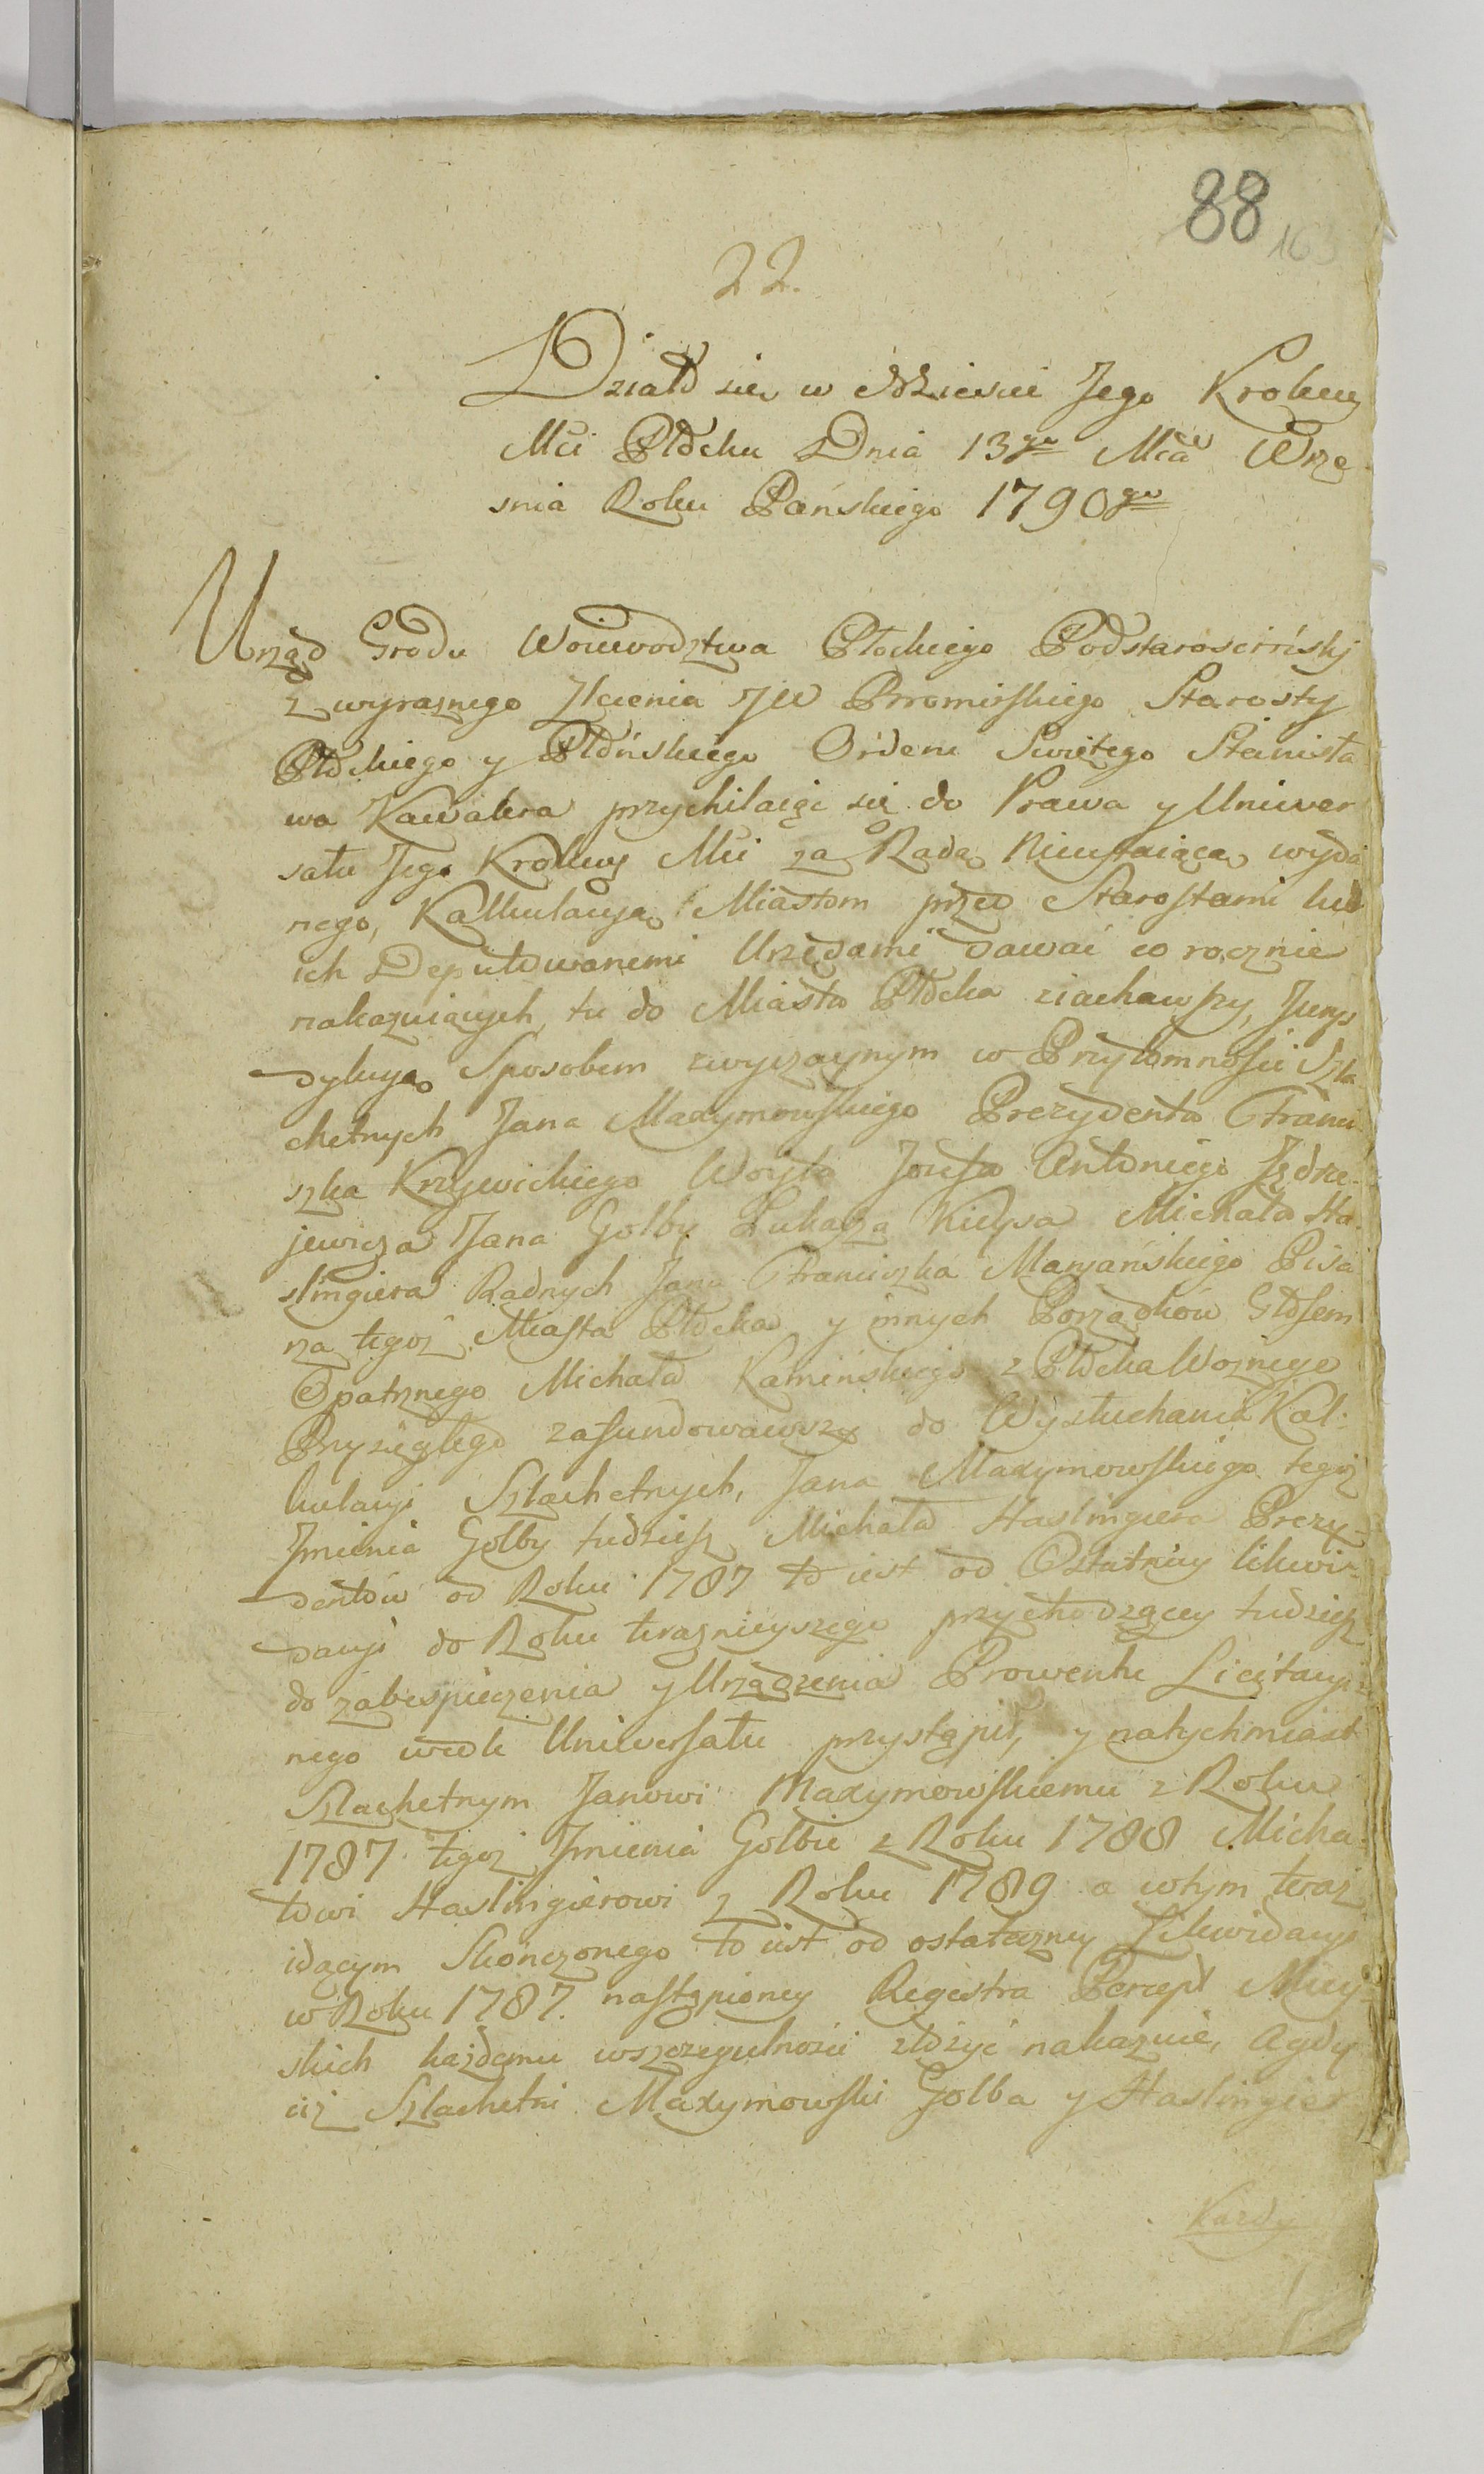 88
163
22.
Działo się w Mieście Jego Krolewy
Mci Płocku Dnia 13go Mca Wrze
snia Roku Pańskiego 1790go
Urząd Grodu Woiewodztwa Płockiego Podstarosciński
z wyraznego Zlecenia JW Przomirskiego Starosty
Płockiego y Płońskiego Orderu Swiętego Stanisła
wa Kawalera przychilaiąc się do Prawa y Uniwer
sału Jego Krolewy Mci za Radą Nieustaiącą wyda
nego, Kalkulacyą Miastom przed Starostami lub
ich Deputowanemi Urzędami dawać co rocznie
nakazuiących, tu do Miasta Płocka ziachawszy, Jurys
dykcyą Sposobem zwyczaynym w Przytomności Szla
chetnych Jana Maxymowskiego Prezydenta Franci
szka Krzywickiego Woyta Jozefa Antoniego Jędrze-
jewicza Jana Golby Łukasza Kiełysa Michała Ha-
slingiera Radnych Jana Franciszka Maryańskiego Pisa
rza tegoż Miasta Płocka y innych Porządków Głosem
Opatrznego Michała Kamińskiego z Płocka Woznego
Przysięgłego zafundowawszy do Wysłuchania Kal-
kulacyi Szlachetnych, Jana Maxymowskiego tegoż
Jmienia Golby tudziesz Michała Haslingiera Prezy-
dentów od Roku 1787 to iest od Ostatniey likwi-
dacyi do Roku teraznieyszego przychodzącey tudziesz
do zabespieczenia y Urządzenia Prowentu Licitacyi
nego wedle Uniwersału przystąpił, y natychmiast
Szlachetnym Janowi Maxymowskiemu z Roku
1787 tegoż Jmienia Golbie z Roku 1788 Micha-
łowi Haslingierowi z Roku 1789 a wtym teraz
idącym Skonczonego to iest od ostateczney Likwidacyi
w Roku 1787. nastąpioney Regestra Percept Miey-
skich każdemu wszczegulności złożyć nakazuie, a gdy
ciż Szlachetni Maxymowski Golba y Haslingier
Kazdy